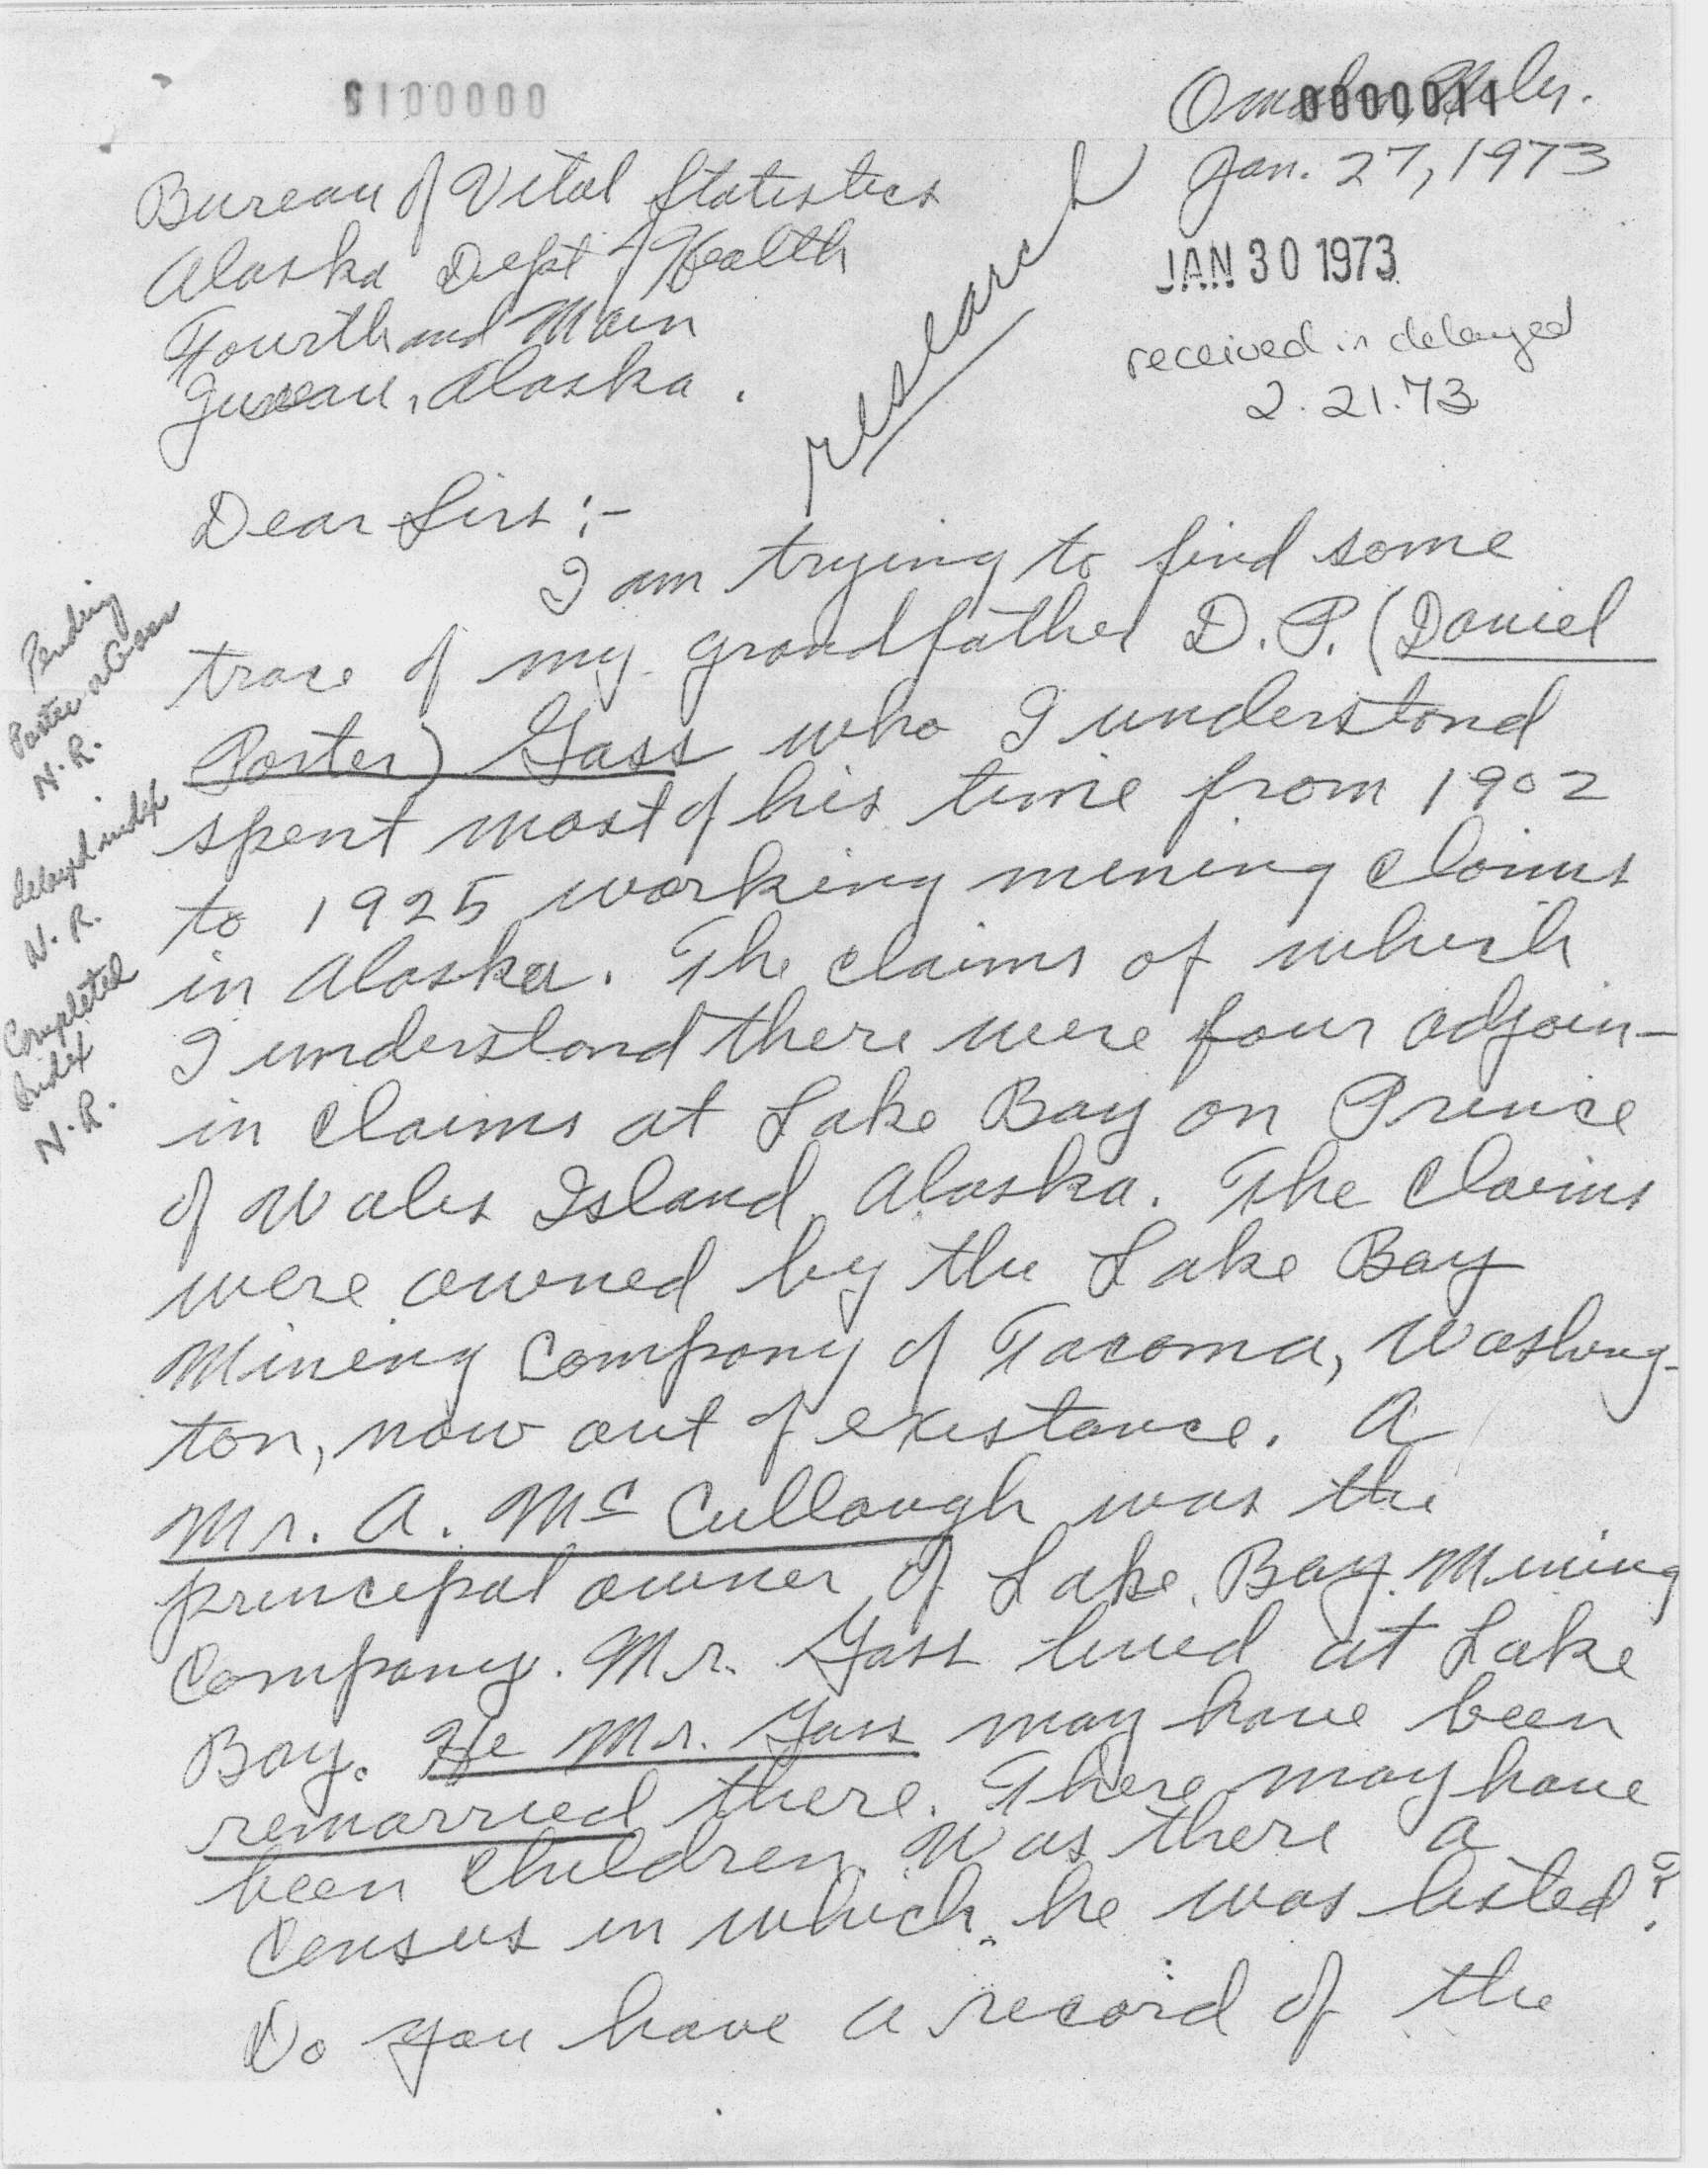 0100000
0000011
Omaha, Nebr.
Jan. 27, 1973
Bureau of Vital Statistics
Alaska Dept of Health
Fourth and Main
Juneau, Alaska.
JAN 30 1973
received in delayed
2.21.73
research
Dear Sirs:-
I am trying to find some
trace of my grandfather D.P. (Daniel
Porter) Gass who I understand
spent most of his time from 1902
to 1925 working mining claims
in Alaska. The claims of which
I understand there were four adjoin-
in claims at Lake Bay on Prince
of Wales Island Alaska. The claims
were owned by the Lake Bay
Mining Company of Tacoma, Washing-
ton, now out of existance. A
Mr. A. McCullough was the
principal owner of Lake Bay Mining
Company. Mr. Gass lived at Lake
Bay. He Mr. Gass may have been
remarried there. There may have
been children. Was there a
Census in which he was listed?
Do you have a record of the
Pending
Porter or Gass
N.R.
delayed index
N.R.
Completed
Index
N.R.